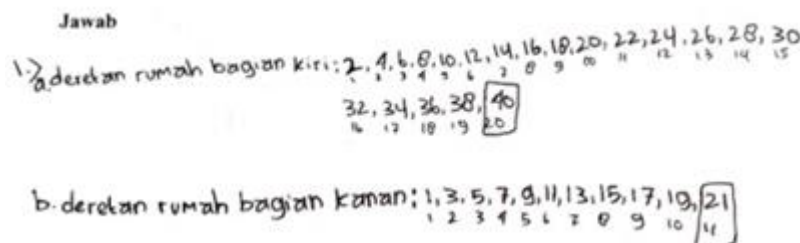 Jawab
1.) a. deretan rumah bagian kiri : 2, 4, 6, 8, 10, 12, 14, 16, 18, 20, 22, 24, 26, 28, 30
1 2 3 4 5 6 7 8 9 10 11 12 13 14 15
32, 34, 36, 38, 40
16 17 18 19 20
b. deretan rumah bagian kanan : 1, 3, 5, 7, 9, 11, 13, 15, 17, 19, 21
1 2 3 4 5 6 7 8 9 10 11